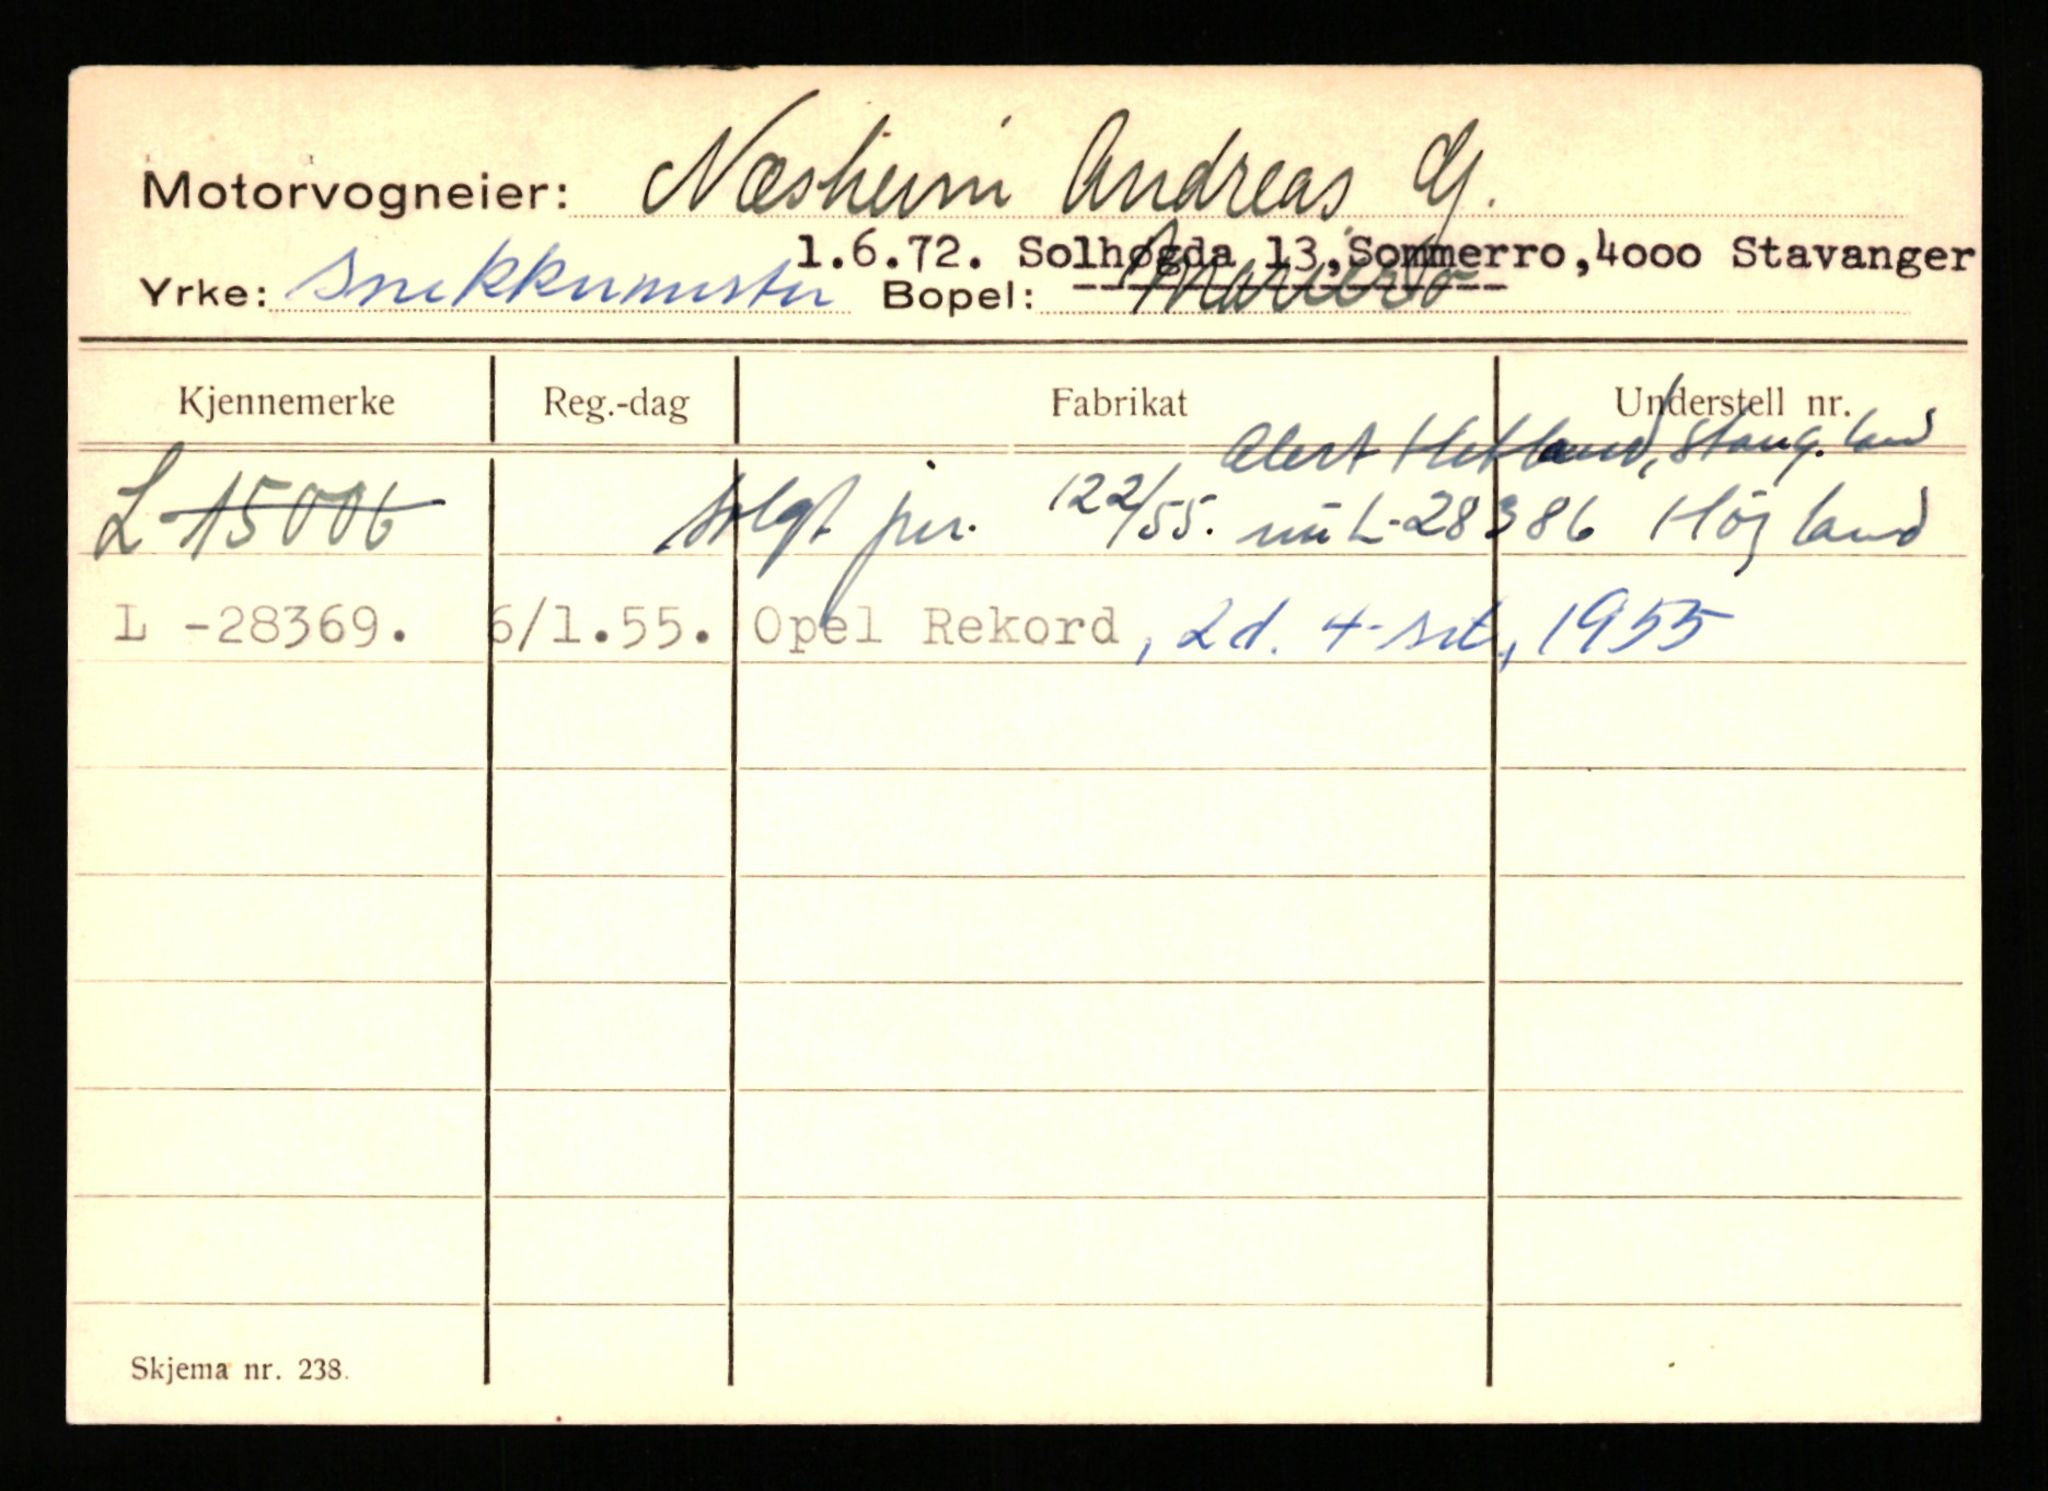 Motorvogneier: Næsheim Andreas G.
1.6.72. Solhøgda 13, Sommerro, 4000 Stavanger
Yrke: snekkermester Bopel: Mariero
Kjennemerke Reg.-dag Fabrikat Understell nr.
Hetland, Stang.land
L-15006 solgt pr. 12 2/55. nu L-28386 Høgland
L -28369. 6/1.55. Opel Rekord, 2d. 4-set, 1955
Skjema nr. 238.